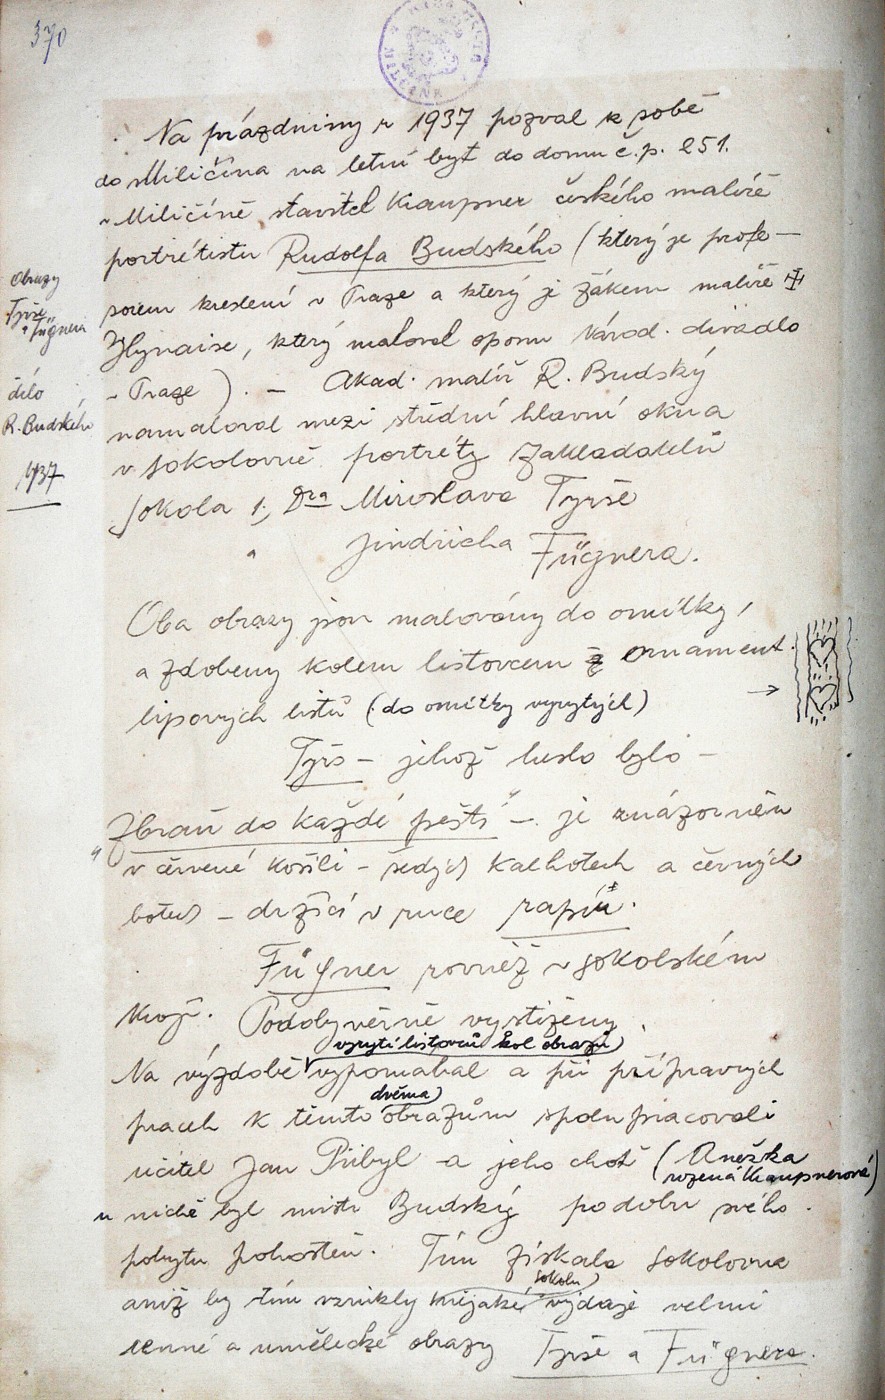 370
Na prázdniny r 1937 pozval k sobě
do Miličína na letní byt do domu č.p. 251.
v Miličíně stavitel Kaupner českého malíře
portrétistu Rudolfa Budského (který je profe-
sorem kreslení v Praze a který je žákem malíře
Hynaise, který maloval oponu Národ. divadlo
v Praze). – Akad. malíř R. Budský
namaloval mezi střední hlavní okna
v sokolovně portréty zakladatelů
Sokola 1., Dra Miroslava Tyrše
a Jindřicha Fügnera.
Obrazy
Tyrše
a Fügnera
dílo
R. Budského
1937
Oba obrazy jsou malovány do omítky,
a zdobeny kolem listovcem z ornament.
lipových listů (do omítky vyrytých) →
Tyrš – jehož heslo bylo –
„Zbraň do každé pěsti" – je znázorněn
v červené košili – šedých kalhotech a černých
botech – držící v ruce rapír.
Fügner rovněž v sokolském
kroji. Podoby věrně vystiženy.
vyrytí listovců kol obrazů
Na výzdobě vypomahal a při přípravných
dvěma
pracech k těmto obrazům spolupracovali
učitel Jan Přibyl a jeho choť (Anežka
rozená Kaupnerová)
u nichž byl mistr Budský podobu svého
pobytu pohostěn. Tím získala sokolovna
sokolu
aniž by tím vznikly nějaké výdaje velmi
cenné a umělecké obrazy Tyrše a Fügnera.